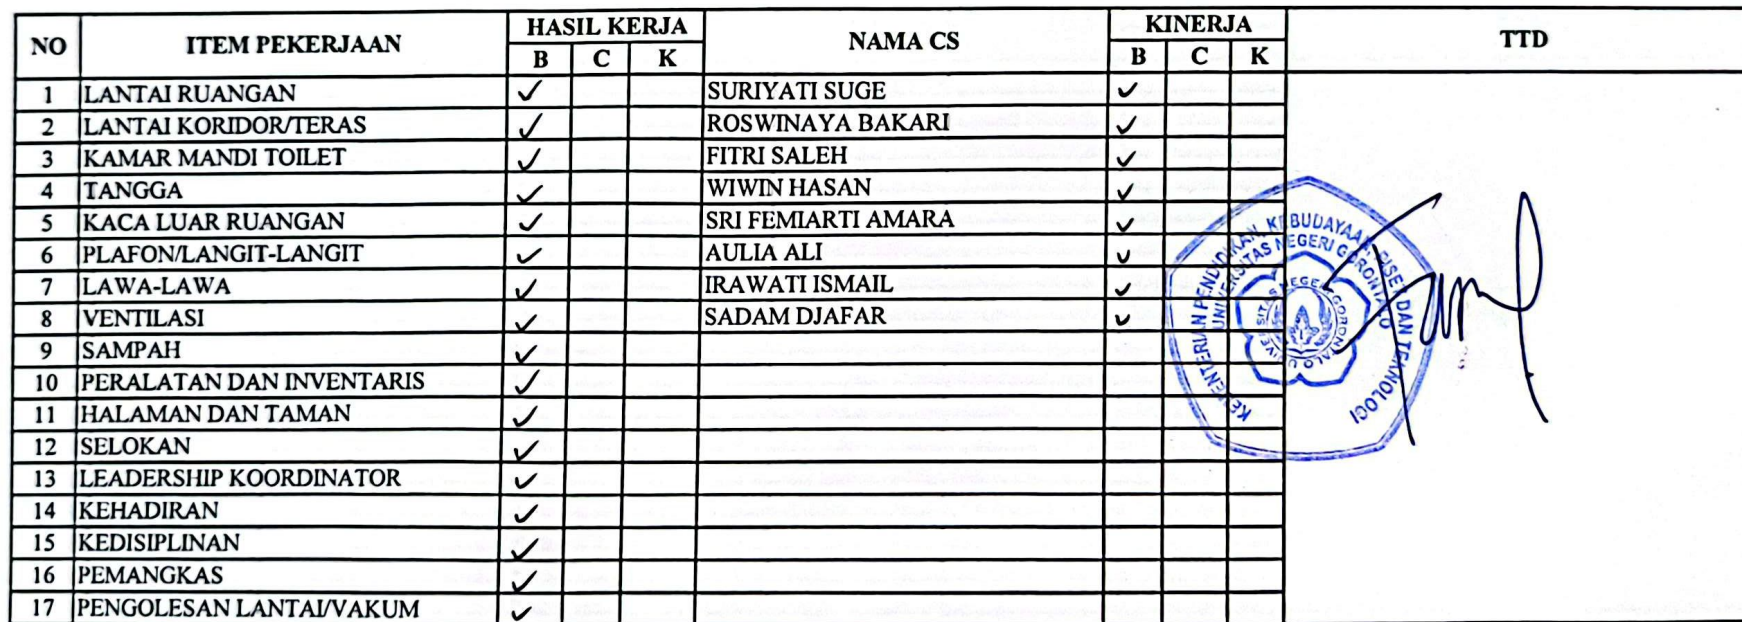 NO ITEM PEKERJAAN HASIL KERJA NAMA CS KINERJA TTD
B C K B C K
1 LANTAI RUANGAN ✓ SURIYATI SUGE ✓
2 LANTAI KORIDOR/TERAS ✓ ROSWINAYA BAKARI ✓
3 KAMAR MANDI TOILET ✓ FITRI SALEH ✓
4 TANGGA ✓ WIWIN HASAN ✓
5 KACA LUAR RUANGAN ✓ SRI FEMIARTI AMARA ✓
6 PLAFON/LANGIT-LANGIT ✓ AULIA ALI ✓
7 LAWA-LAWA ✓ IRAWATI ISMAIL ✓
8 VENTILASI ✓ SADAM DJAFAR ✓
9 SAMPAH ✓
10 PERALATAN DAN INVENTARIS ✓
11 HALAMAN DAN TAMAN ✓
12 SELOKAN ✓
13 LEADERSHIP KOORDINATOR ✓
14 KEHADIRAN ✓
15 KEDISIPLINAN ✓
16 PEMANGKAS ✓
17 PENGOLESAN LANTAI/VAKUM ✓
KEMENTERIAN PENDIDIKAN, KEBUDAYAAN, RISET, DAN TEKNOLOGI
UNIVERSITAS NEGERI GORONTALO
UNIVERSITAS NEGERI GORONTALO